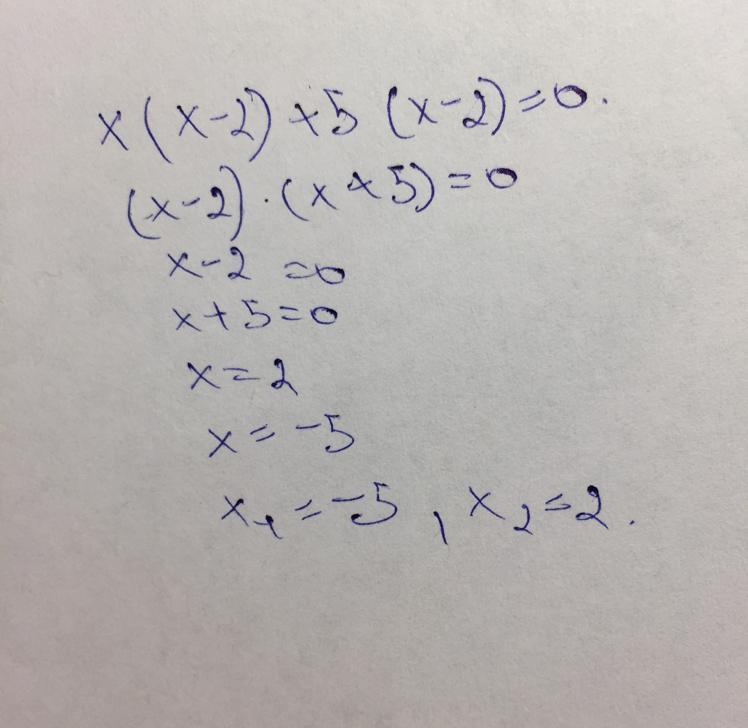 x(x-2)+5(x-2)=0.
(x-2)·(x+5)=0
x-2=0
x+5=0
x=2
x=-5
x₁=-5, x₂=2.